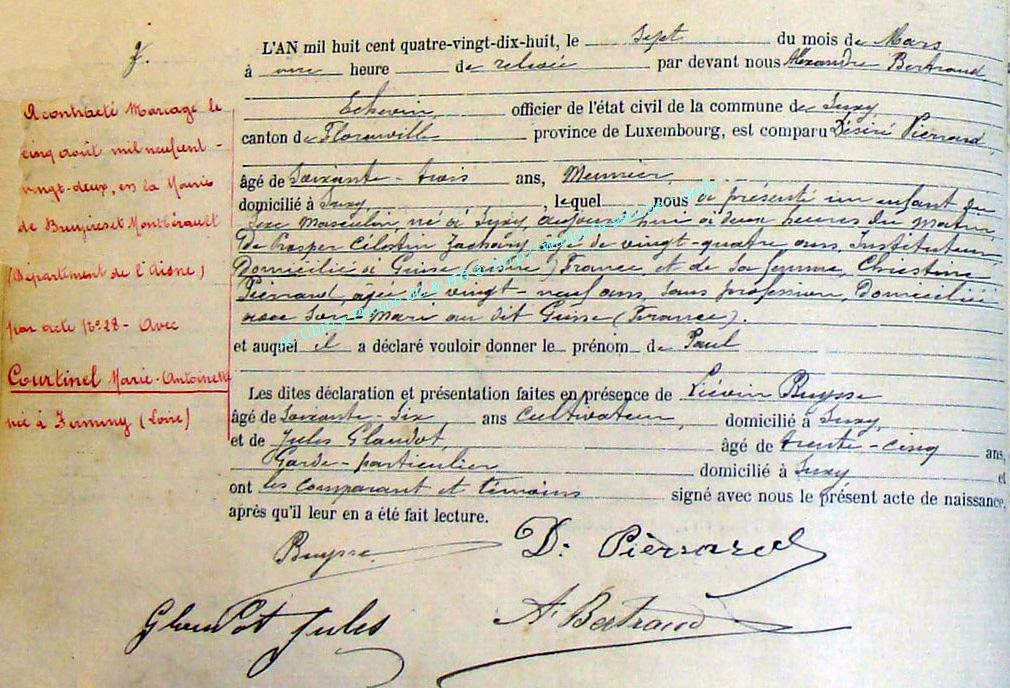 7.
L'AN mil huit cent quatre-vingt-dix-huit, le Sept du mois de Mars
à une heure de relevée par devant nous Alexandre Bertrand
Echevin, officier de l'état civil de la commune de Suxy
canton de Florenville province de Luxembourg, est comparu Désiré Pierrard,
âgé de Soixante-trois ans, Meunier,
domicilié à Suxy, lequel nous a présenté un enfant du
Sexe Masculin, né à Suxy, aujourd'hui à deux heures du matin
De Prosper Célestin Zachary, âgé de vingt-quatre ans, Instituteur
Domicilié à Guise (Aisne) France, et de Sa femme, Christine
Piérrard, âgée de vingt-neuf ans, Sans profession, Domiciliée
avec Son Mari au dit Guise (France).
et auquel il a déclaré vouloir donner le prénom de Paul
Les dites déclaration et présentation faites en présence de Liévin Buysse
âgé de Soixante-Six ans Cultivateur, domicilié à Suxy,
et de Jules Glaudot, âgé de trente-cinq ans,
Garde-particulier domicilié à Suxy et
ont les comparant et témoins signé avec nous le présent acte de naissance,
après qu'il leur en a été fait lecture.
Buysse D. Pièrrard
Glaudot Jules A. Bertrand
A contracté Mariage le
cinq août mil neufcent-
vingt-deux, en la Mairie
de Bruyères et Montbérault
(Département de l'Aisne)
par acte No 28 - Avec
Courtinel Marie-Antoinette
née à Firminy (Loire)